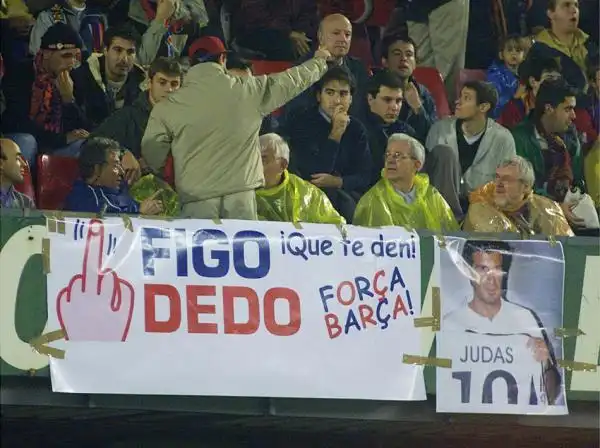 ¡¡ !!
FIGO ¡Que te den!
DEDO FORÇA
BARÇA!
JUDAS
10